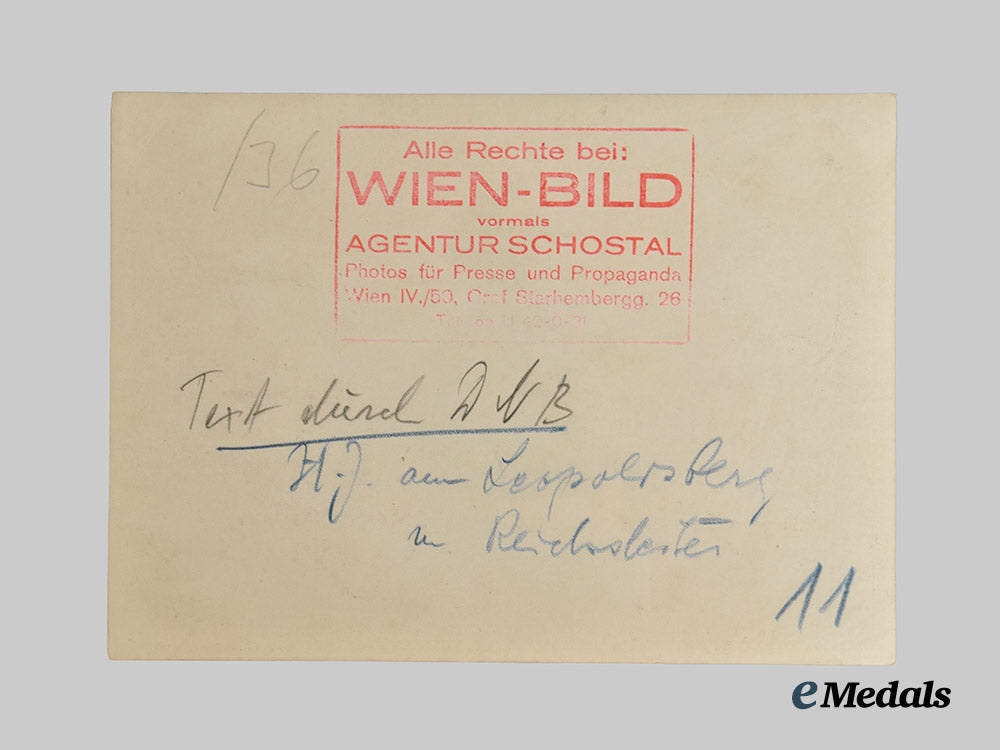 /36
Alle Rechte bei:
WIEN-BILD
vormals
AGENTUR SCHOSTAL
Photos für Presse und Propaganda
Wien IV./50, Graf Starhembergg. 26
Text durch DNB
H.J. am Leopoldsberg
m. Reichsleiter
11
eMedals